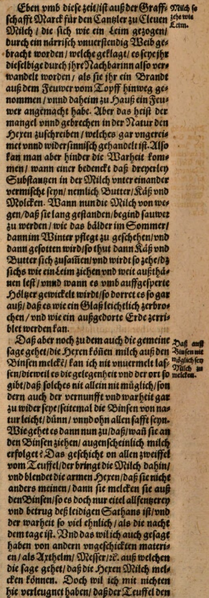 Eben vmb diese zeit/ist auß der Graff-
schafft Marck für den Cantzler zu Cleuen
Milch/ die sich wie ein Leim gezogen/
durch ein närrisch vnuerstendig Weib ge-
bracht worden/ welche geklagt/ es seye ihr
dieselbige durch ihre Nachbarinn also ver-
wandelt worden/ als sie ihr ein Brandt
auß dem Feuwer vom Topff hinweg ge-
nommen / vnnd daheim zu Hauß ein Feu-
wer angemacht habe. Aber das heist der
mangel vnnd gebrechen in der Natur den
Hexen zuschreiben / welches gar vngerei-
met vnnd widersinnisch gehandelt ist. Also
kan man aber hinder die Warheit kom-
men / wann einer bedenckt daß dreyerley
Substantzen in der Milch vnter einander
vermischt seyn/ nemlich Butter / Käß vnd
Molcken. Wann nun die Milch von we-
gen/ daß sie lang gestanden/ beginnd sauwer
zu werden / wie das bälder im Sommer/
dann im Winter pflegt zu geschehen/ vnd
dann gesotten wird/ so thut dann Käß vnd
Butter sich zusamen/ vnd wirdt so zehe/ dz
sichs wie ein Leim ziehen vnd weit außthä-
nen leßt / vnnd wann es vmb auffgesperte
Höltzer gewickelt wirdt/ so dorret es so gar
auß/ daß es wie ein Glaß leichtlich zerbro-
chen / vnd wie ein außgedorte Erde zerri-
blet werden kan.
Daß aber noch zu dem auch die gemeine
sage gehet/ die Hexen könen milch auß den
Binsen melckē/ kan ich nit vnuermelt las-
sen/ dieweil es die gelegenheit vnd der ort so
gibt/ daß solches nit allein nit müglich/ son
dern auch der vernunfft vnd warheit gar
zu wider seye/ seitemal die Binsen von na-
tur leicht/ dünn / vnd ohn allen safft seyn.
Wie gehet es dann nun zu/ daß/ wañ sie an
den Binsen ziehen/ augenscheinlich milch
erfolget? Das geschicht on allen zweiffel
vom Teuffel/ der bringt die Milch dahin/
vnd blendet die armen Hexen/ daß sie nicht
anders meinen / dann sie melcken sie auß
den Binsen/ so es doch nur eitel
vnd betrug deß leidigen Sathans ist/ vnd
der warheit so viel ehnlich/ als die nacht
dem tage ist. Vnd das wil ich auch gesagt
haben von andern vngeschickten materi-
en / als Axthelm/ Messer/ ꝛc. auß welchen
die sage gehet/ daß die Hexen Milch mel-
cken können. Doch wil ich mit nichten
hie verleugnet haben/ daß der Teuffel den
Milch so
zehe wie
Leim.
Daß auß
Binsen nit
müglich sey
Milch zu
melcken.